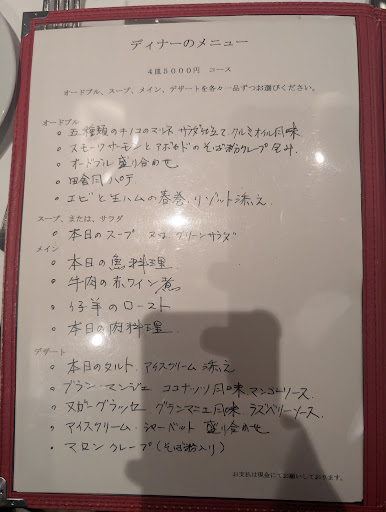 ディナーのメニュー
4皿5000円 コース
オードブル、スープ、メイン、デザートを各々一品ずつお選びください。
オードブル
五種類のキノコのマリネ サラダ仕立て クルミオイル風味
スモークサーモンとアボカドのそば粉クレープ包み
オードブル盛り合わせ
田舎風パテ
エビと生ハムの春巻、リゾット添え
スープ、または、サラダ
本日のスープ 又は グリーンサラダ
メイン
本日の魚料理
牛肉の赤ワイン煮
仔羊のロースト
本日の肉料理
デザート
本日のタルト、アイスクリーム添え
ブラン・マンジェ ココナッツ風味 マンゴーソース
ヌガーグラッセ グランマニエ風味 ラズベリーソース
アイスクリーム・シャーベット 盛り合わせ
マロンクレープ(そば粉入り)
お支払は現金にてお願いしております。